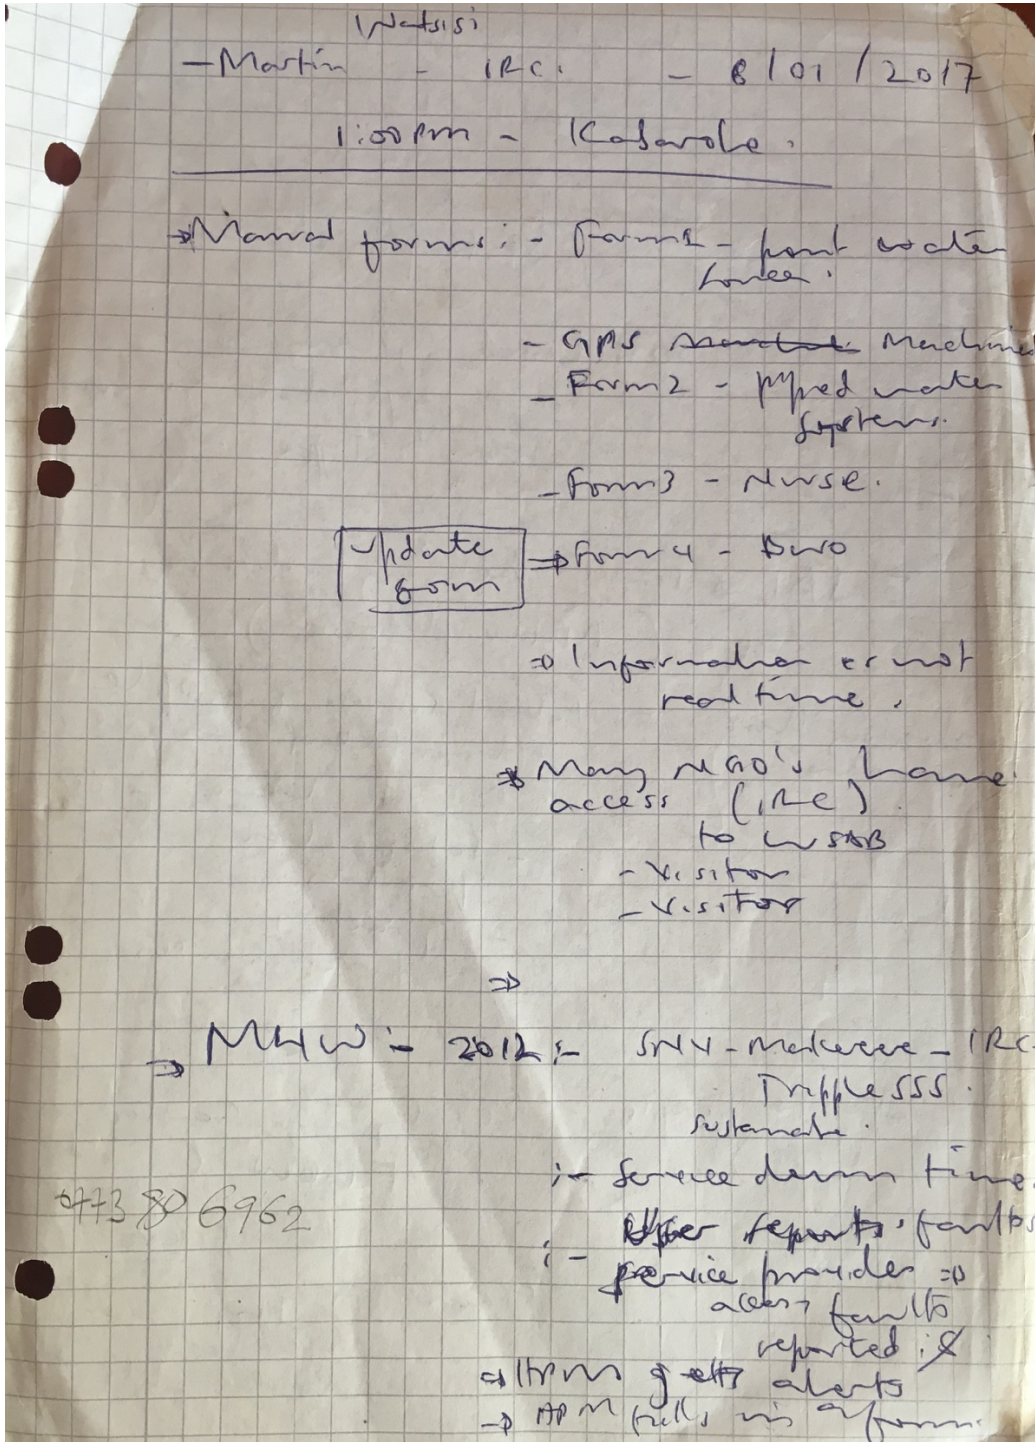 Watsisi
- Martin - IRC. - 8/01/2017
1:00pm - Kabarole.
⇒ Manual forms: - Form1 - point water
source.
- GPS Machines
- Form2 - piped water
systems.
- Form3 - Nurse.
Update
form
⇒ Form4 - DWO
⇒ Information is not
real time.
⇒ Many NGO's have
access (IRC)
to WSDB
- Visitor
- Visitor
⇒
⇒ M4W :- 2012 :- SNV - Makerere - IRC
Tripple SSS.
:- Service down time.
0773 806962
:- User reports faults
service provider ⇒
access faults
reported :
⇒ HPM gets alerts
→ HPM fills in a form.